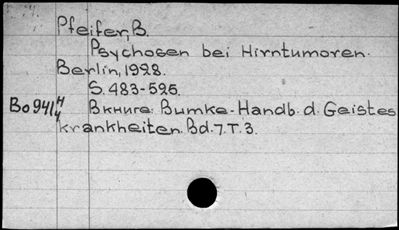 Pfeifer, B.
Psychosen bei Hirntumoren.
Berlin, 1928.
S. 483-525.
Во 941 4/4 Вкниге: Bumke. Handb. d. Geistes
krankheiten. Bd. 7. T. 3.